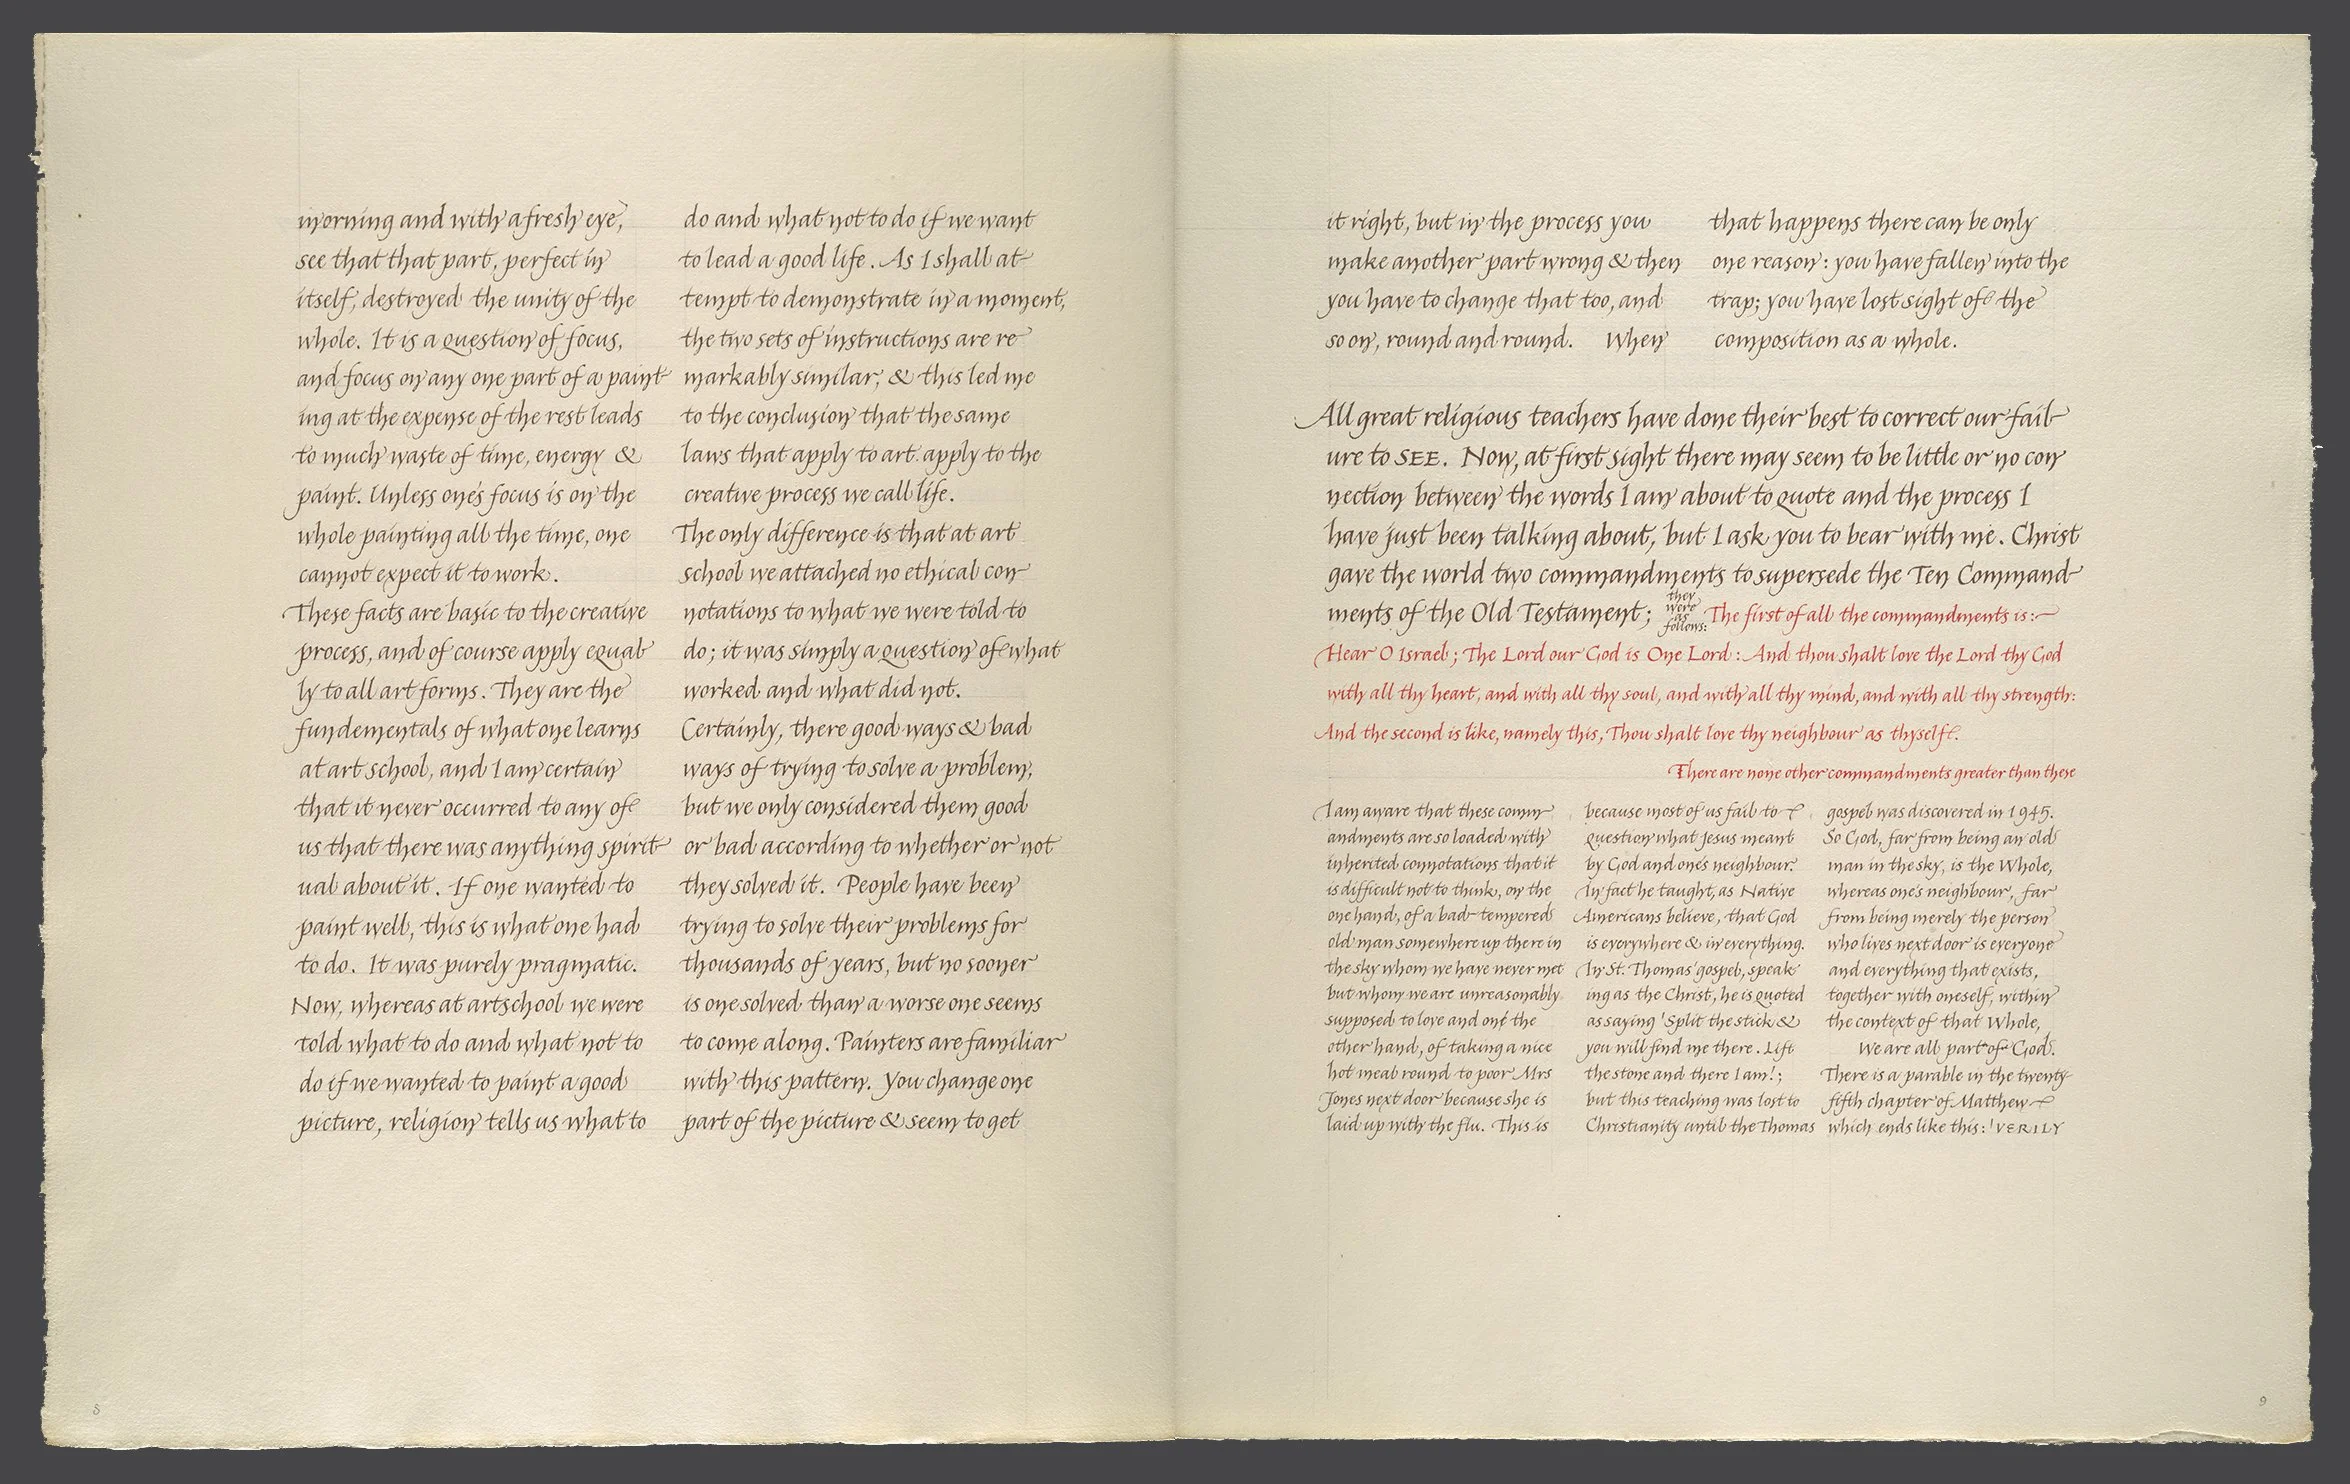 morning and with a fresh eye,
see that that part, perfect in
itself, destroyed the unity of the
whole. It is a question of focus,
and focus on any one part of a paint
ing at the expense of the rest leads
to much waste of time, energy &
paint. Unless one's focus is on the
whole painting all the time, one
cannot expect it to work.
These facts are basic to the creative
process, and of course apply equal
ly to all art forms. They are the
fundementals of what one learns
at art school, and I am certain
that it never occurred to any of
us that there was anything spirit
ual about it. If one wanted to
paint well, this is what one had
to do. It was purely pragmatic.
Now, whereas at artschool we were
told what to do and what not to
do if we wanted to paint a good
picture, religion tells us what to
do and what not to do if we want
to lead a good life. As I shall at
tempt to demonstrate in a moment,
the two sets of instructions are re
markably similar, & this led me
to the conclusion that the same
laws that apply to art apply to the
creative process we call life.
The only difference is that at art
school we attached no ethical con
notations to what we were told to
do; it was simply a question of what
worked and what did not.
Certainly, there good ways & bad
ways of trying to solve a problem,
but we only considered them good
or bad according to whether or not
they solved it. People have been
trying to solve their problems for
thousands of years, but no sooner
is one solved than a worse one seems
to come along. Painters are familiar
with this pattern. You change one
part of the picture & seem to get
8
it right, but in the process you
make another part wrong & then
you have to change that too, and
so on, round and round. When
that happens there can be only
one reason: you have fallen into the
trap; you have lost sight of the
composition as a whole.
All great religious teachers have done their best to correct our fail
ure to SEE. Now, at first sight there may seem to be little or no con
nection between the words I am about to quote and the process I
have just been talking about, but I ask you to bear with me. Christ
gave the world two commandments to supersede the Ten Command
ments of the Old Testament; they were as follows: The first of all the commandments is:
Hear O Israel; The Lord our God is One Lord: And thou shalt love the Lord thy God
with all thy heart, and with all thy soul, and with all thy mind, and with all thy strength:
And the second is like, namely this, Thou shalt love thy neighbour as thyself.
There are none other commandments greater than these
I am aware that these comm
andments are so loaded with
inherited connotations that it
is difficult not to think, on the
one hand, of a bad tempered
old man somewhere up there in
the sky whom we have never met
but whom we are unreasonably
supposed to love and on the
other hand, of taking a nice
hot meal round to poor Mrs
Jones next door because she is
laid up with the flu. This is
because most of us fail to
question what Jesus meant
by God and one's neighbour.
In fact he taught, as Native
Americans believe, that God
is everywhere & in everything.
In St. Thomas' gospel, speak
ing as the Christ, he is quoted
as saying 'Split the stick &
you will find me there. Lift
the stone and there I am!;
but this teaching was lost to
Christianity until the Thomas
gospel was discovered in 1945.
So God, far from being an old
man in the sky, is the Whole,
whereas one's neighbour, far
from being merely the person
who lives next door is everyone
and everything that exists,
together with oneself, within
the context of that Whole,
We are all part of God.
There is a parable in the twenty
fifth chapter of Matthew
which ends like this: 'VERILY
9